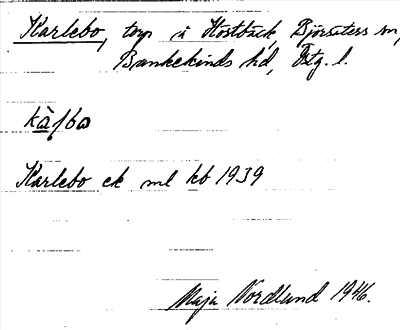 Karlebo, torp i Hostbäck, Björsäters sn,
Bankekinds hd, Östg. l.
Karlebo ek ml kb 1939
Maja Nordlund 1946.